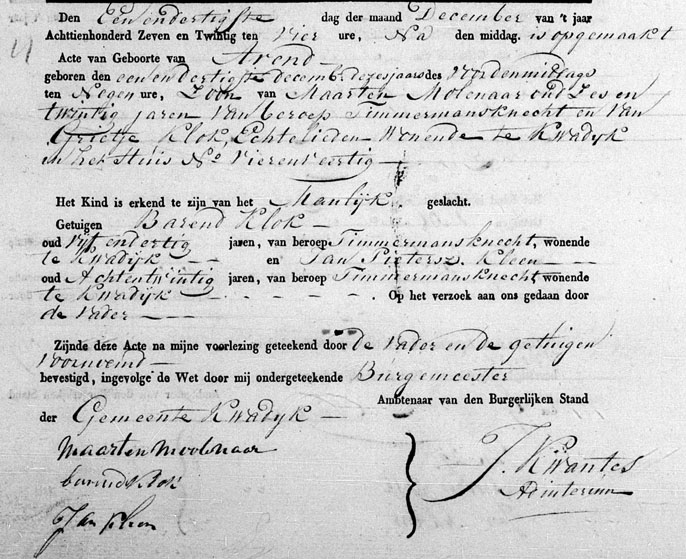 Den Een endertigste dag der maand December van 't jaar
Achttienhonderd Zeven en Twintig ten Vier ure, Na den middag. is opgemaakt
Acte van Geboorte van Arend
geboren den een endertigste december dezes jaars des Voordenmiddags
ten Negen ure, Zoon van Maarten Molenaar oud Zes en
twintig jaren van beroep Timmermansknecht en van
Grietje Klok, Echtelieden Wonende te Kwadyk
in het Huis No Vierenveertig
Het Kind is erkend te zijn van het Manlyk geslacht.
Getuigen Barend Klok
oud Vyf endertig jaren, van beroep Timmermansknecht, wonende
te Kwadyk en Jan Pietersz. Kleen
oud Achtentwintig jaren, van beroep Timmermansknecht, wonende
te Kwadyk Op het verzoek aan ons gedaan door
de vader
Zijnde deze Acte na mijne voorlezing geteekend door de vader en de getuigen
voornoemd
bevestigd, ingevolge de Wet door mij ondergeteekende Burgemeester
Ambtenaar van den Burgerlijken Stand
der Gemeente Kwadyk
Maarten Moolenaar
barend klok
Jan kleen
J. Kwantes
Adinterim